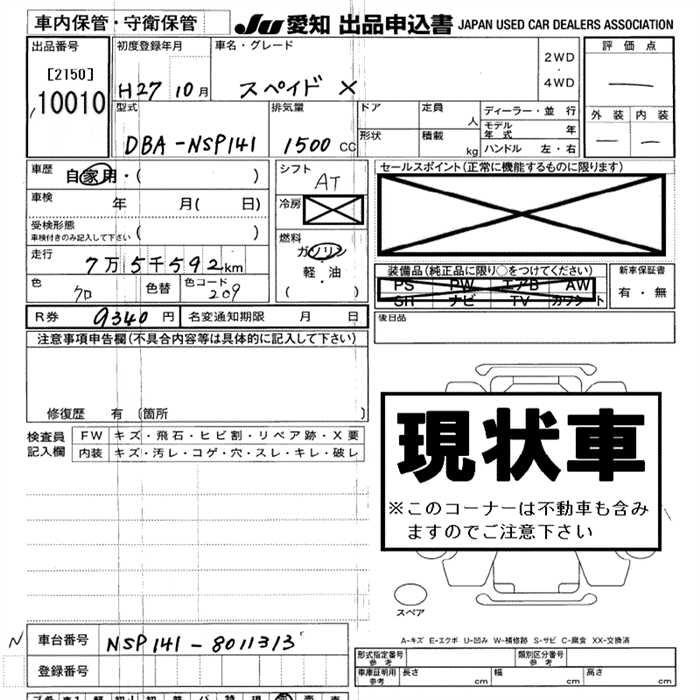 車内保管・守衛保管
JU 愛知 出品申込書 JAPAN USED CAR DEALERS ASSOCIATION
出品番号
[2150]
10010
初度登録年月
H27 10月
車名・グレード
スペイド X
2WD
・
4WD
評価点
外装 内装
型式
DBA-NSP141
排気量
1500 CC
ドア
定員
人
形状
積載
kg
ディーラー・並行
モデル年式 年
ハンドル 左・右
車歴
自家用・( )
車検
年 月( 日)
受検形態
車検付きのみ記入して下さい ( )
走行
7万5千592km
色
クロ
色替
色コード
209
シフト
AT
冷房
燃料
ガソリン
・
軽・油
( )
セールスポイント(正常に機能するものに限ります)
装備品(純正品に限り○をつけてください)
PS PW エアB AW
SR ナビ TV カワシート
新車保証書
有・無
R券 9340 円
名変通知期限 月 日
後日品
注意事項申告欄(不具合内容等は具体的に記入して下さい)
修復歴 有 [箇所 ]
検査員
記入欄
FW キズ・飛石・ヒビ割・リペア跡・X要
内装 キズ・汚レ・コゲ・穴・スレ・キレ・破レ
現状車
※このコーナーは不動車も含み
ますのでご注意下さい
スペア
A-キズ E-エクボ U-凹み W-補修跡 S-サビ C-腐食 XX-交換済
N
車台番号 NSP141-8011313
登録番号
形式指定番号
参考
類別区分番号
参考
車庫証明用
参考
長さ cm 幅 cm 高さ cm